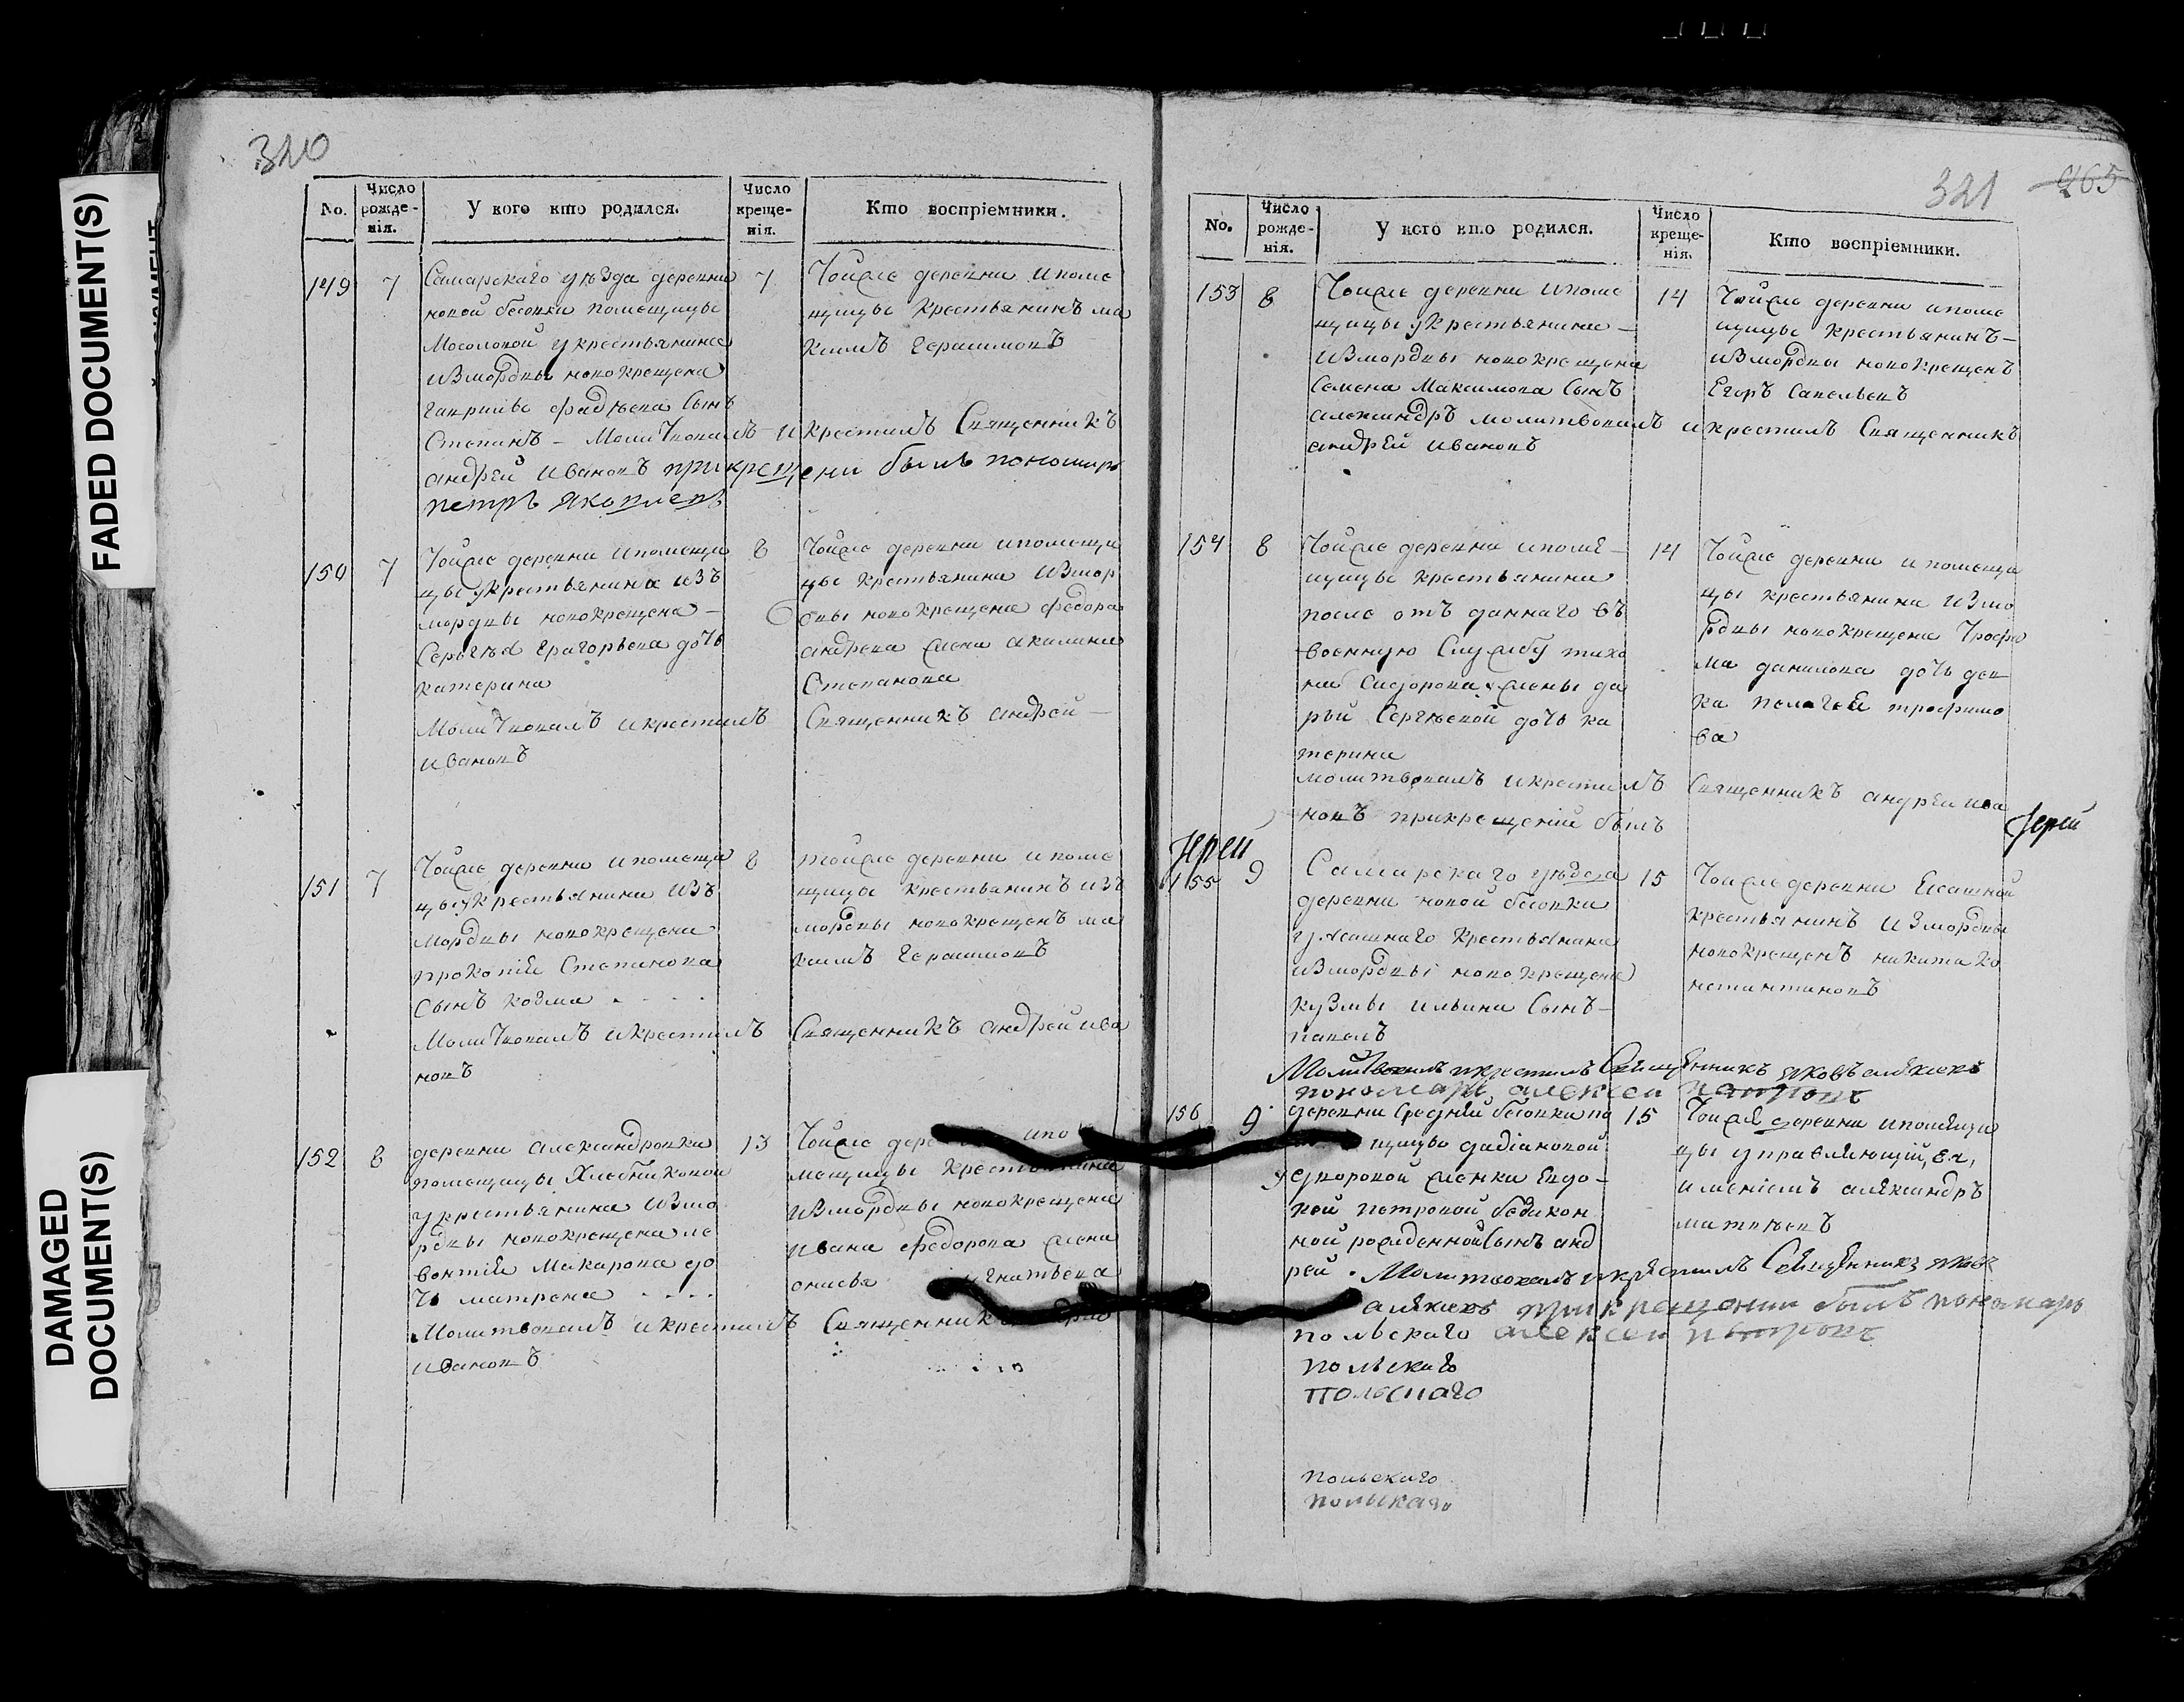 FADED DOCUMENT(S)
DAMAGED
DOCUMENT(S)
320
No.
Число рожде-нія.
У кого кто родился.
Число креще-нія.
Кто воспріемники.
149
7
Самарскаго уѣзда деревни
новой бесовки помещицы
Мосоловой укрестьянина
измордвы новокрещена
гаврилы фадѣева Сынъ
Степанъ – Молитвовалъ и крестилъ Священникъ
андрей Ивановъ прикрещени былъ пономарь
петръ Яковлевъ
7
Тойже деревни ипоме
щицы крестьянинъ ма
ксимъ Герасимовъ
150
7
Тойже деревни ипомещи
цы укрестьянина изъ
мордвы новокрещена –
Сергѣя Григорьева дочь
катерина
Молитвовалъ икрестилъ Священникъ андрей –
ивановъ
8
Тойже деревни ипомещи
цы крестьянина измор
двы новокрещена федора
андреева жена акилина
Степанова
151
7
Тойже деревни ипомещи
цы укрестьянина изъ
мордвы новокрещена
прокопія Степанова
Сынъ козма
Молитвовалъ икрестилъ Священникъ андрей ива
новъ
8
тойже деревни ипоме
щицы крестьянинъ изъ
мордвы новокрещенъ ма
ксимъ герасимовъ
152
8
деревни александровки
помещицы Хлебниковой
укрестьянина измо
рдвы новокрещена ле
вонтія Макарова до
чь матрена
Молитвовалъ икрестилъ Священникъ
ивановъ
13
Тойже ипо
мещицы крестьянина
измордвы новокрещена
ивана федорова жена
игнатьева
321
265
No.
Число рожде-нія.
У кого кто родился.
Число креще-нія.
Кто воспріемники.
153
8
Тойже деревни ипоме
щицы укрестьянина –
измордвы новокрещена
Семена Максимова Сынъ
александръ молитвовалъ и крестилъ Священникъ
андрей ивановъ
14
Тойже деревни ипоме
щицы крестьянинъ –
измордвы новокрещенъ
Егоръ Савельевъ
154
8
Тойже деревни ипоме –
щицы крестьянина
после отъ даннаго въ
военную Службу тихо
на Сидорова жены да
рьи Сергѣевой дочь ка
терина
молитвовалъ икрестилъ Священникъ андрей ива
новъ прикрещеніи былъ
14
Тойже деревни ипомещи
цы крестьянина измо
рдвы новокрещена Трофи
ма данилова дочь дев
ка пелагея трофимо
ва
Іерей
Іерей
155
9
Самарскаго уѣзда
деревни новой бесовки
у Ясашнаго крестьянина
измордвы новокрещена
кузмы ильина Сынъ –
павелъ
Молитвовалъ икрестилъ Священникъ яковъ алексіевъ
пономарь алексей петровъ
15
Тойже деревни Ясашной
крестьянинъ измордвы
новокрещенъ никита ко
нстантиновъ
156
9
деревни Средней бесовки по
щицы
дворовой женки Евдо –
кеи петровой безакон
ной рожденной Сынъ анд
рей . Молитвовалъ икрестилъ Священникъ яковъ
алексіевъ прикрещении былъ пономарь
польскаго алексей петровъ
15
Тойже деревни ипомещи
цы управляющій, ея,
имѣніемъ александръ
матвѣевъ
польскаго
польскаго
польскаго
польскаго